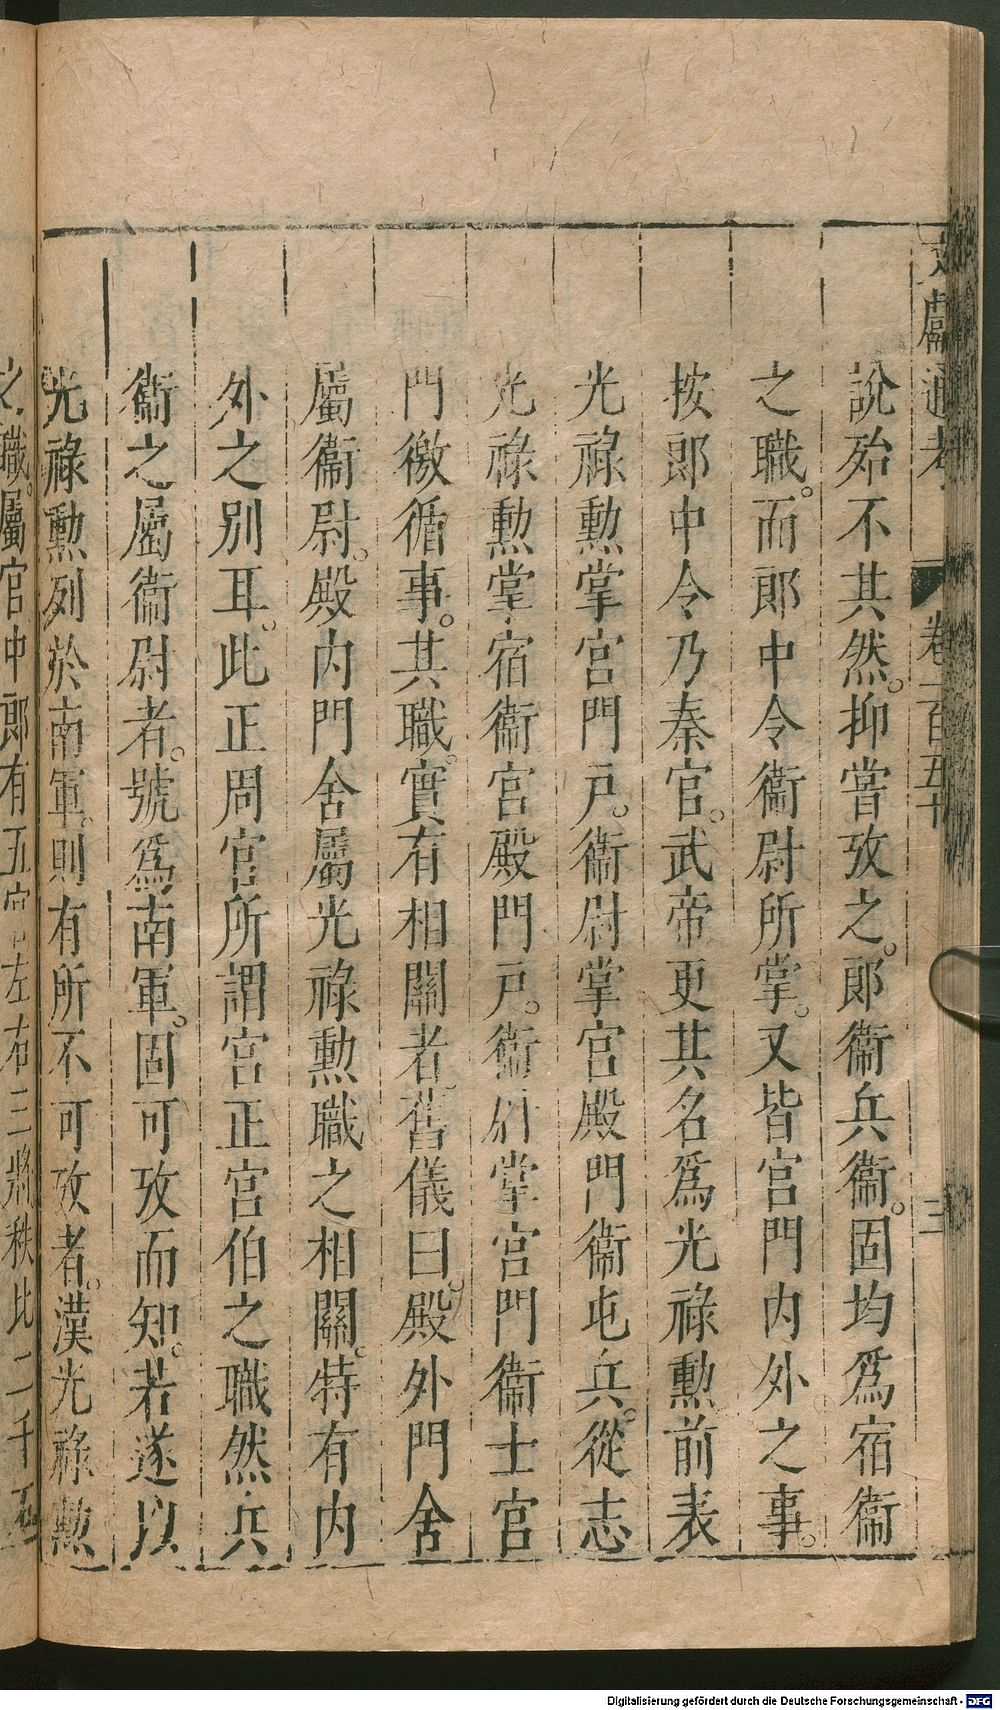 文獻通考 卷一百五十 三
說殆不其然。抑嘗攷之。郎衞兵衞。固均爲宿衞
之職。而郎中令衞尉所掌。又皆宮門内外之事。
按郎中令乃秦官。武帝更其名爲光祿勲前表
光祿勲掌宮門戸。衞尉掌宮殿門衞屯兵。從志
光祿勲掌宿衞宮殿門戸。衞尉掌宮門衞士宮
門徼循事。其職。實有相關者。舊儀曰。殿外門舍
屬衞尉。殿内門舍屬光祿勲職之相關。特有内
外之别耳。此正周官所謂宮正宮伯之職然兵
衞之屬衞尉者。號爲南軍。固可攷而知。若遂以
光祿勲列於南軍。則有所不可攷者。漢光祿勲
之職。屬官中郎有五官左右三將秩比二千石
Digitalisierung gefördert durch die Deutsche Forschungsgemeinschaft - DFG